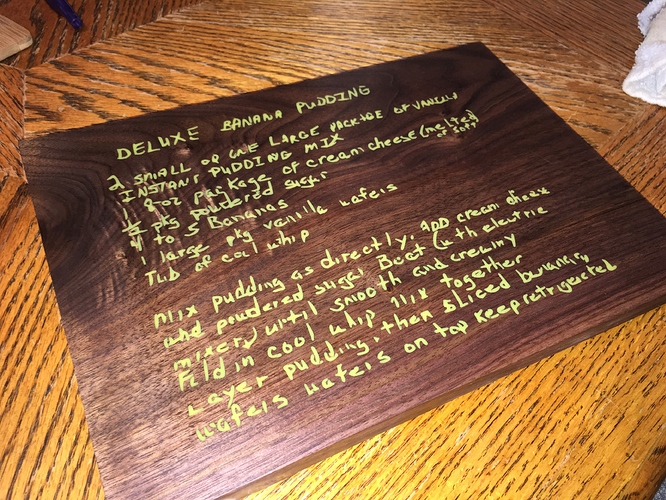 DELUXE BANANA PUDDING
2 SMALL OR ONE LARGE PACKAGE OF VANILLA
INSTANT PUDDING MIX
1 8-oz package of cream cheese (melted or soft)
1/2 pkg powdered sugar
4 to 5 Bananas
1 large pkg vanilla wafers
Tub of cool whip
mix pudding as directly. ADD cream cheese
and powdered sugar Beat (with electric
mixer) until smooth and creamy
Fold in cool whip Mix together
Layer pudding, then sliced bananas,
wafers wafers on top keep refrigerated